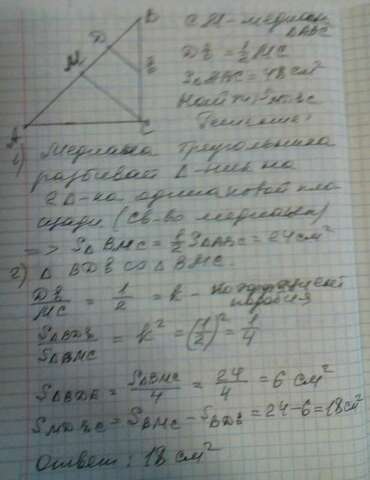 B
D
M
E
A
C
CM - медиана
△ABC
DE = 1/2 MC
S△ABC = 48 см²
Найти: S
Решение:
1) Медиана треугольника
разбивает △-ник на
2 △-ка, одинаковой пло
щади (св-во медианы)
=> S△BMC = 1/2 S△ABC = 24 см²
2) △ BDE ∽ △ BMC.
DE/MC = 1/2 = k - коэффициент
подобия
S△BDE/S△BMC = k² = (1/2)² = 1/4
S△BDE = S△BMC/4 = 24/4 = 6 см²
SMDEC = SBMC - SBDE = 24-6 = 18 см²
Ответ: 18 см²